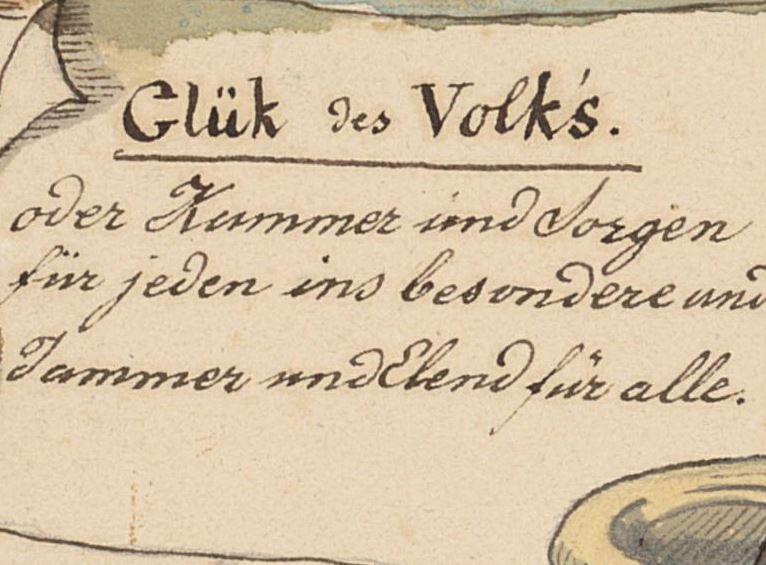 Glük des Volk's.
oder Kummer und Sorgen
für jeden ins besondere und
Jammer und Elend für alle.